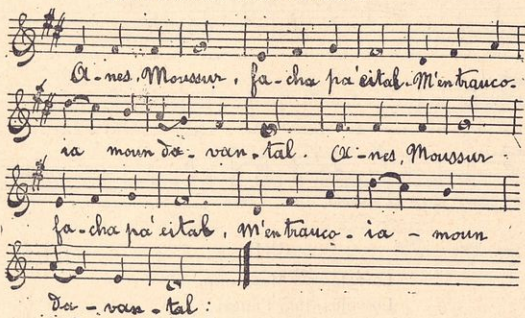 A-nes, Moussur, fa-cha pa'eital. M'en trauco-
ia moun da-van-tal. A-nes, Moussur:
fa-cha pa'eital, M'en trauco-ia-moun
da-van-tal: